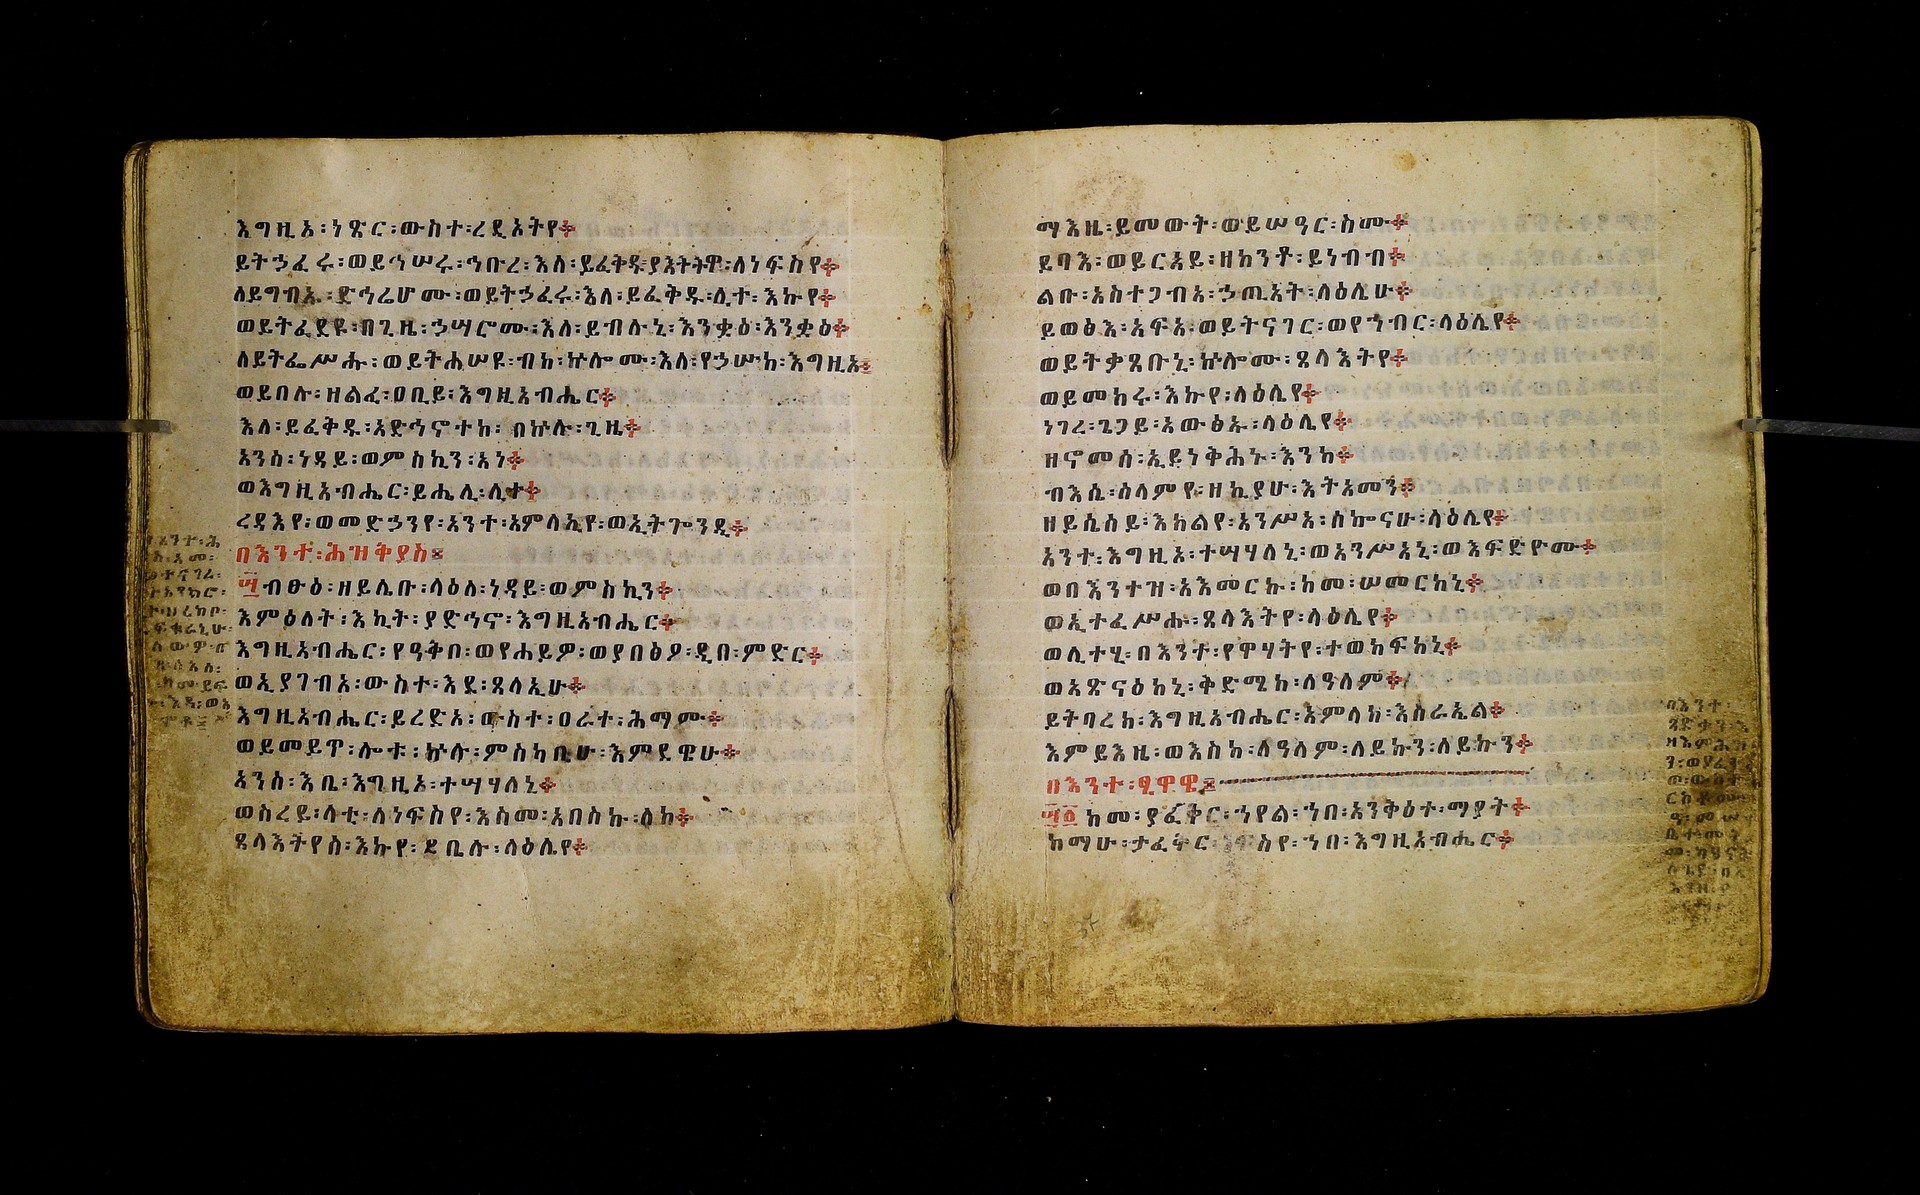 እግዚአ፡ነጽር፡ውስተ፡ረዲኦትየ፨
ይትኃፈሩ፡ወይኅሠሩ፡ኅቡረ፡እለ፡ይፈቅዱ፡ያእትትዋ፡ለነፍስየ፨
ለይግብኡ፡ድኅሬሆሙ፡ወይትኃፈሩ፡እለ፡ይፈቅዱ፡ሊተ፡እኩየ፨
ወይትፈደዩ፡በጊዜ፡ኃሣሮሙ፡እለ፡ይብሉኒ፡እንቋዕ፡እንቋዕ፨
ለይትፌሥሑ፡ወይትሐሠዩ፡ብከ፡ኵሎሙ፡እለ፡የኃሡከ፡እግዚኦ፨
ወይበሉ፡ዘልፈ፡ዐቢይ፡እግዚአብሔር፨
እለ፡ይፈቅዱ፡አድኅኖተከ፡በኵሉ፡ጊዜ፨
አንሰ፡ነዳይ፡ወምስኪን፡አነ፨
ወእግዚአብሔር፡ይሔሊ፡ሊተ፨
ረዳእየ፡ወመድኃንየ፡አንተ፡አምላኪየ፡ወኢትጐንዲ፨
በእንተ፡ሕዝቅያስ፨
፵ብፁዕ፡ዘይሌቡ፡ላዕለ፡ነዳይ፡ወምስኪን፨
እምዕለት፡እኪት፡ያድኅኖ፡እግዚአብሔር፨
እግዚአብሔር፡የዓቅቦ፡ወየሐይዎ፡ወያበፅዖ፡ዲበ፡ምድር፨
ወኢያገብኦ፡ውስተ፡እደ፡ጸላኢሁ፨
እግዚአብሔር፡ይረድኦ፡ውስተ፡ዐራተ፡ሕማሙ፨
ወይመይጥ፡ሎቱ፡ኵሉ፡ምስካቢሁ፡እምደዌሁ፨
አንሰ፡እቤ፡እግዚኦ፡ተሣሃለኒ፨
ወስረይ፡ላቲ፡ለነፍስየ፡እስመ፡አበስኩ፡ለከ፨
ጸላእትየሰ፡እኩየ፡ይቤሉ፡ላዕሌየ፨
ማእዜ፡ይመውት፡ወይሠዓር፡ስሙ፨
ይባእ፡ወይርአይ፡ዘከንቶ፡ይነብብ፨
ልቡ፡አስተጋብአ፡ኃጢአት፡ላዕሌሁ፨
ይወፅእ፡አፍአ፡ወይትናገር፡ወየኀብር፡ላዕሌየ፨
ወይትቃጸቡኒ፡ኵሎሙ፡ጸላእትየ፨
ወይመክሩ፡እኩየ፡ላዕሌየ፨
ነገረ፡ጌጋይ፡አውፅኡ፡ላዕሌየ፨
ዘኖመሰ፡ኢይነቅሕኑ፡እንከ፨
ብእሴ፡ሰላምየ፡ዘኪያሁ፡እትአመን፨
ዘይሴሰይ፡እክልየ፡አንሥአ፡ሰኰናሁ፡ላዕሌየ፨
አንተ፡እግዚኦ፡ተሣሃለኒ፡ወአንሥአኒ፡ወእፍድዮሙ፨
ወበእንተዝ፡አእመርኩ፡ከመ፡ሠመርከኒ፨
ወኢተፈሥሑ፡ጸላእትየ፡ላዕሌየ፨
ወሊተሂ፡በእንተ፡የዋሃትየ፡ተወከፍከኒ፨
ወአጽናዕከኒ፡ቅድሜከ፡ለዓለም፨
ይትባረክ፡እግዚአብሔር፡አምላከ፡እስራኤል፨
እምይእዜ፡ወእስከ፡ለዓለም፡ለይኩን፡ለይኩን፨
በእንተ፡ፂዋዌ፨
፵፩ከመ፡ያፈቅር፡ኀየል፡ኀበ፡አንቅዕተ፡ማያት፨
ከማሁ፡ታፈቅር፡ነፍስየ፡ኀበ፡እግዚአብሔር፨